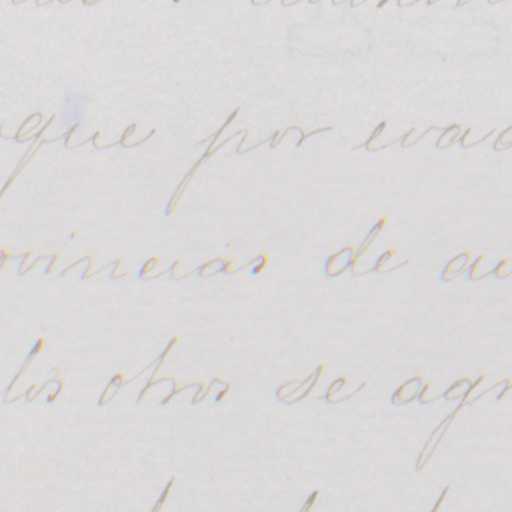 que por evad
ovincias de au
los otros se agr